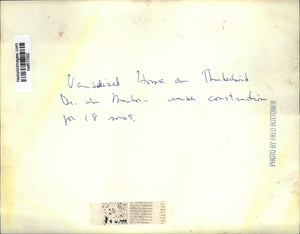 Vandalized House on Thunderbird
Dr. in Mentor. under construction
for 18 mos.
PHOTO BY FRED BOTTOMER